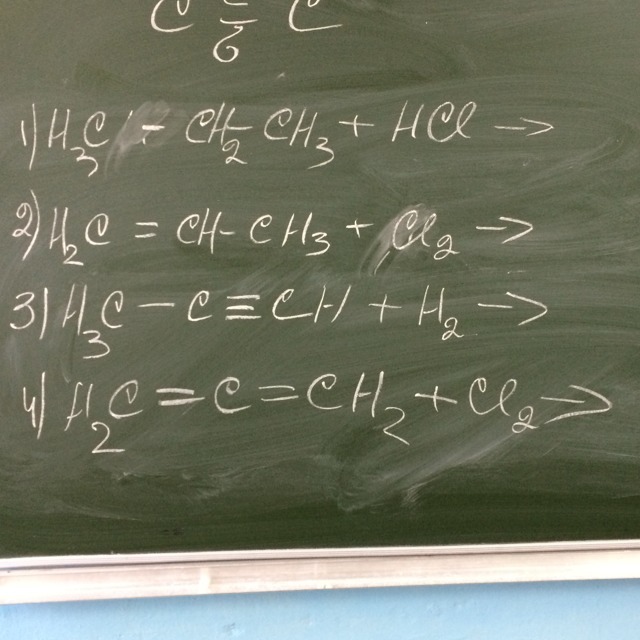 C 2/6 C
1) H₃C - CH₂- CH₃ + HCl →
2) H₂C = CH-CH₃ + Cl₂ →
3) H₃C - C ≡ CH + H₂ →
4) H₂C = C = CH₂ + Cl₂ →